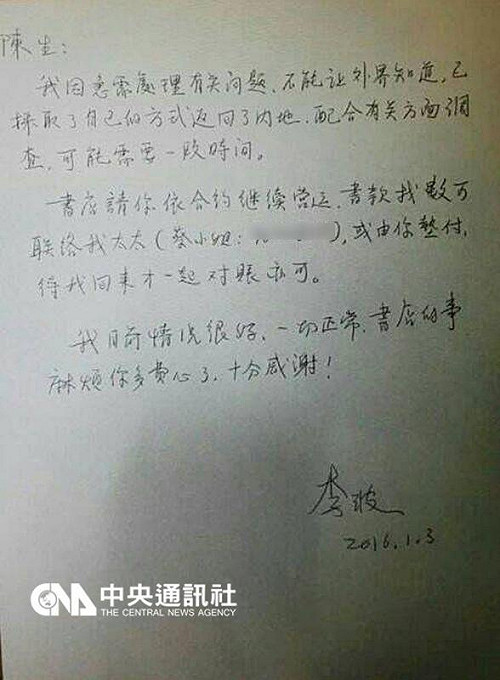 陳生：
我因急需處理有关问题，不能让外界知道，已
採取了自己的方式返回了内地，配合有关方面調
查，可能需要一段時间。
書店請你依合約继续营运，書款找數可
联络我太太（蔡小姐：
），或由你墊付，
待我回来才一起对賬亦可。
我目前情况很好，一切正常，書店的事
麻煩你多費心了，十分感謝！
李波
2016.1.3
CNA 中央通訊社
THE CENTRAL NEWS AGENCY